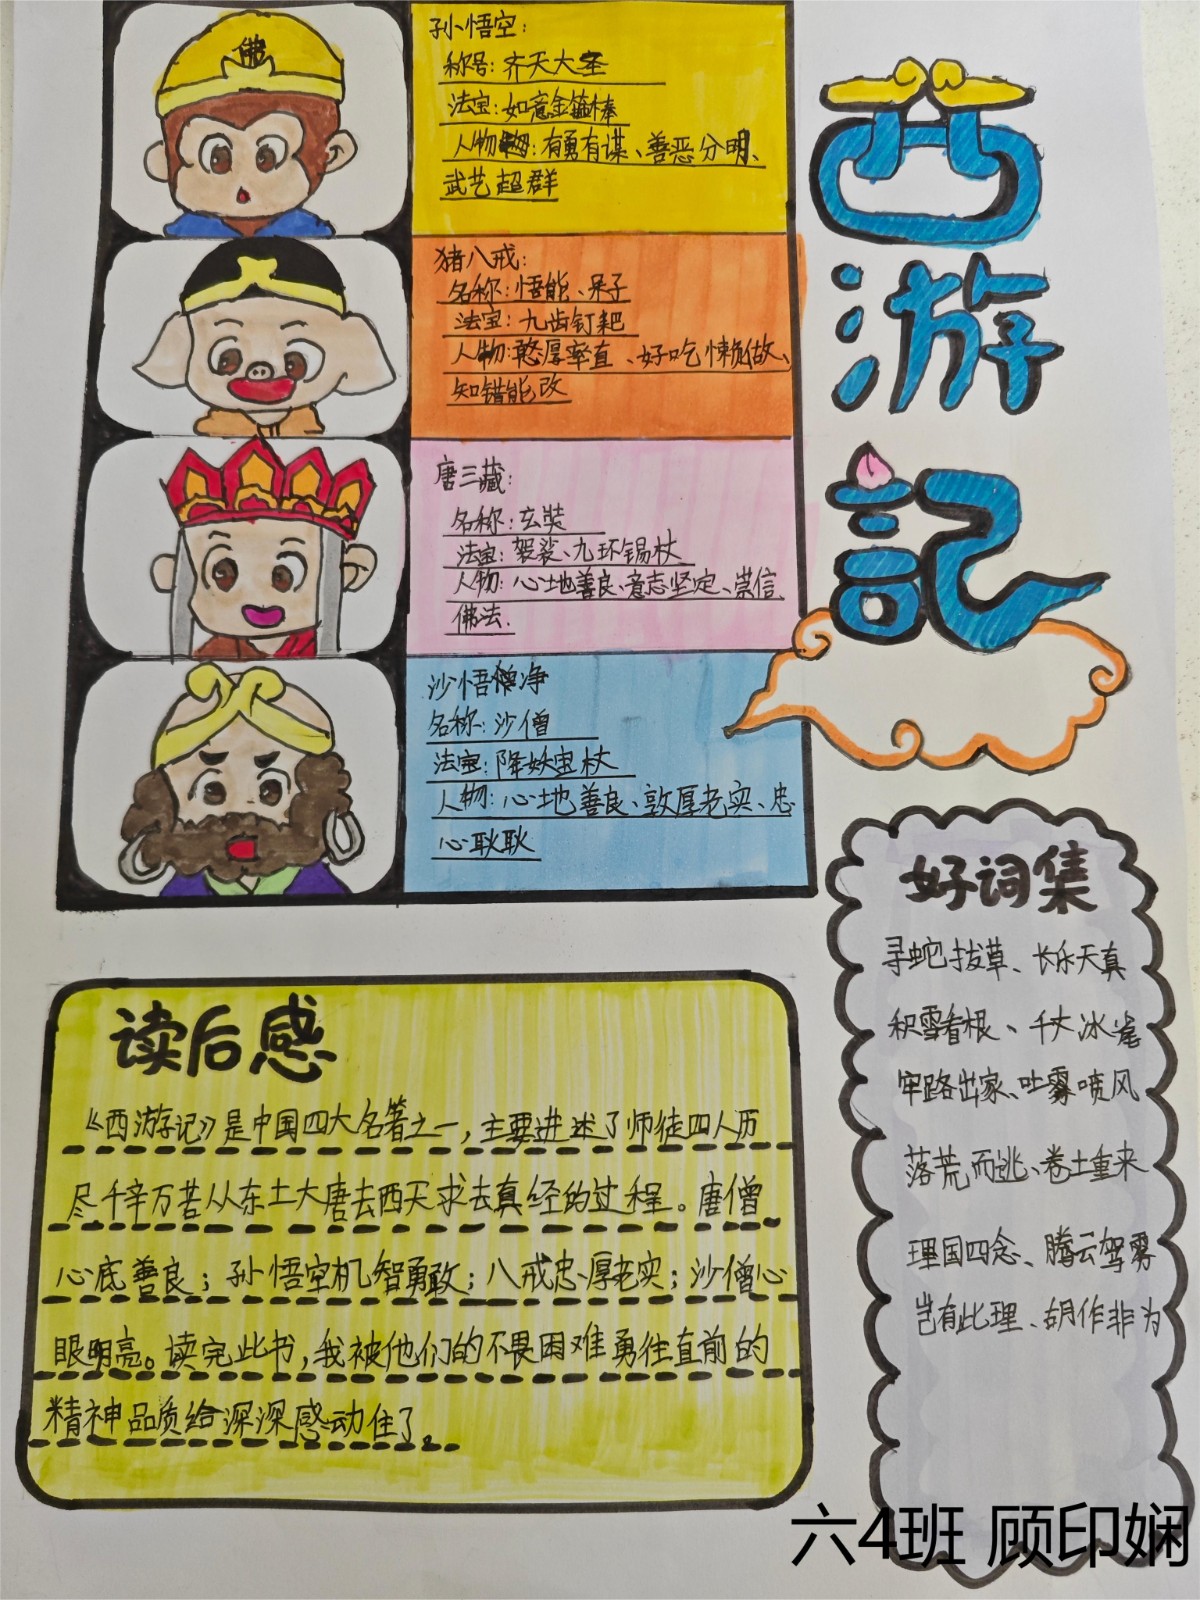 西游記
佛
孙悟空:
称号:齐天大圣
法宝:如意金箍棒
人物:有勇有谋、善恶分明、
武艺超群
猪八戒:
名称:悟能、呆子
法宝:九齿钉耙
人物:憨厚率直、好吃懒做、
知错能改
唐三藏:
名称:玄奘
法宝:袈裟、九环锡杖
人物:心地善良、意志坚定、崇信
佛法.
沙悟净
名称:沙僧
法宝:降妖宝杖
人物:心地善良、敦厚老实、忠
心耿耿
好词集
寻蛇拔草、长乐天真
积雪看根、千丈冰崖
牢路出家、吐雾喷风
落荒而逃、卷土重来
理国四念、腾云驾雾
岂有此理、胡作非为
读后感
《西游记》是中国四大名著之一,主要进述了师徒四人历
尽千辛万苦从东土大唐去西天求去真经的过程。唐僧
心底善良;孙悟空机智勇敢;八戒忠厚老实;沙僧心
眼明亮。读完此书,我被他们的不畏困难勇往直前的
精神品质给深深感动住了。
六4班 顾印娴